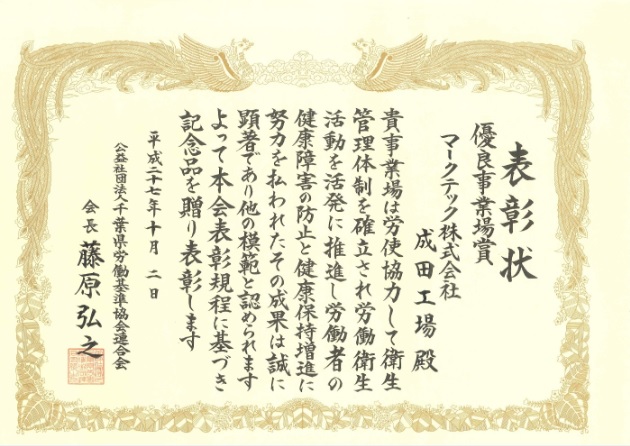 表彰状
優良事業場賞
マークテック株式会社
成田工場殿
貴事業場は労使協力して衛生
管理体制を確立され労働衛生
活動を活発に推進し労働者の
健康障害の防止と健康保持増進に
努力を払われたその成果は誠に
顕著であり他の模範と認められます
よって本会表彰規程に基づき
記念品を贈り表彰します
平成二十七年十月二日
公益社団法人千葉県労働基準協会連合会
会長藤原弘之